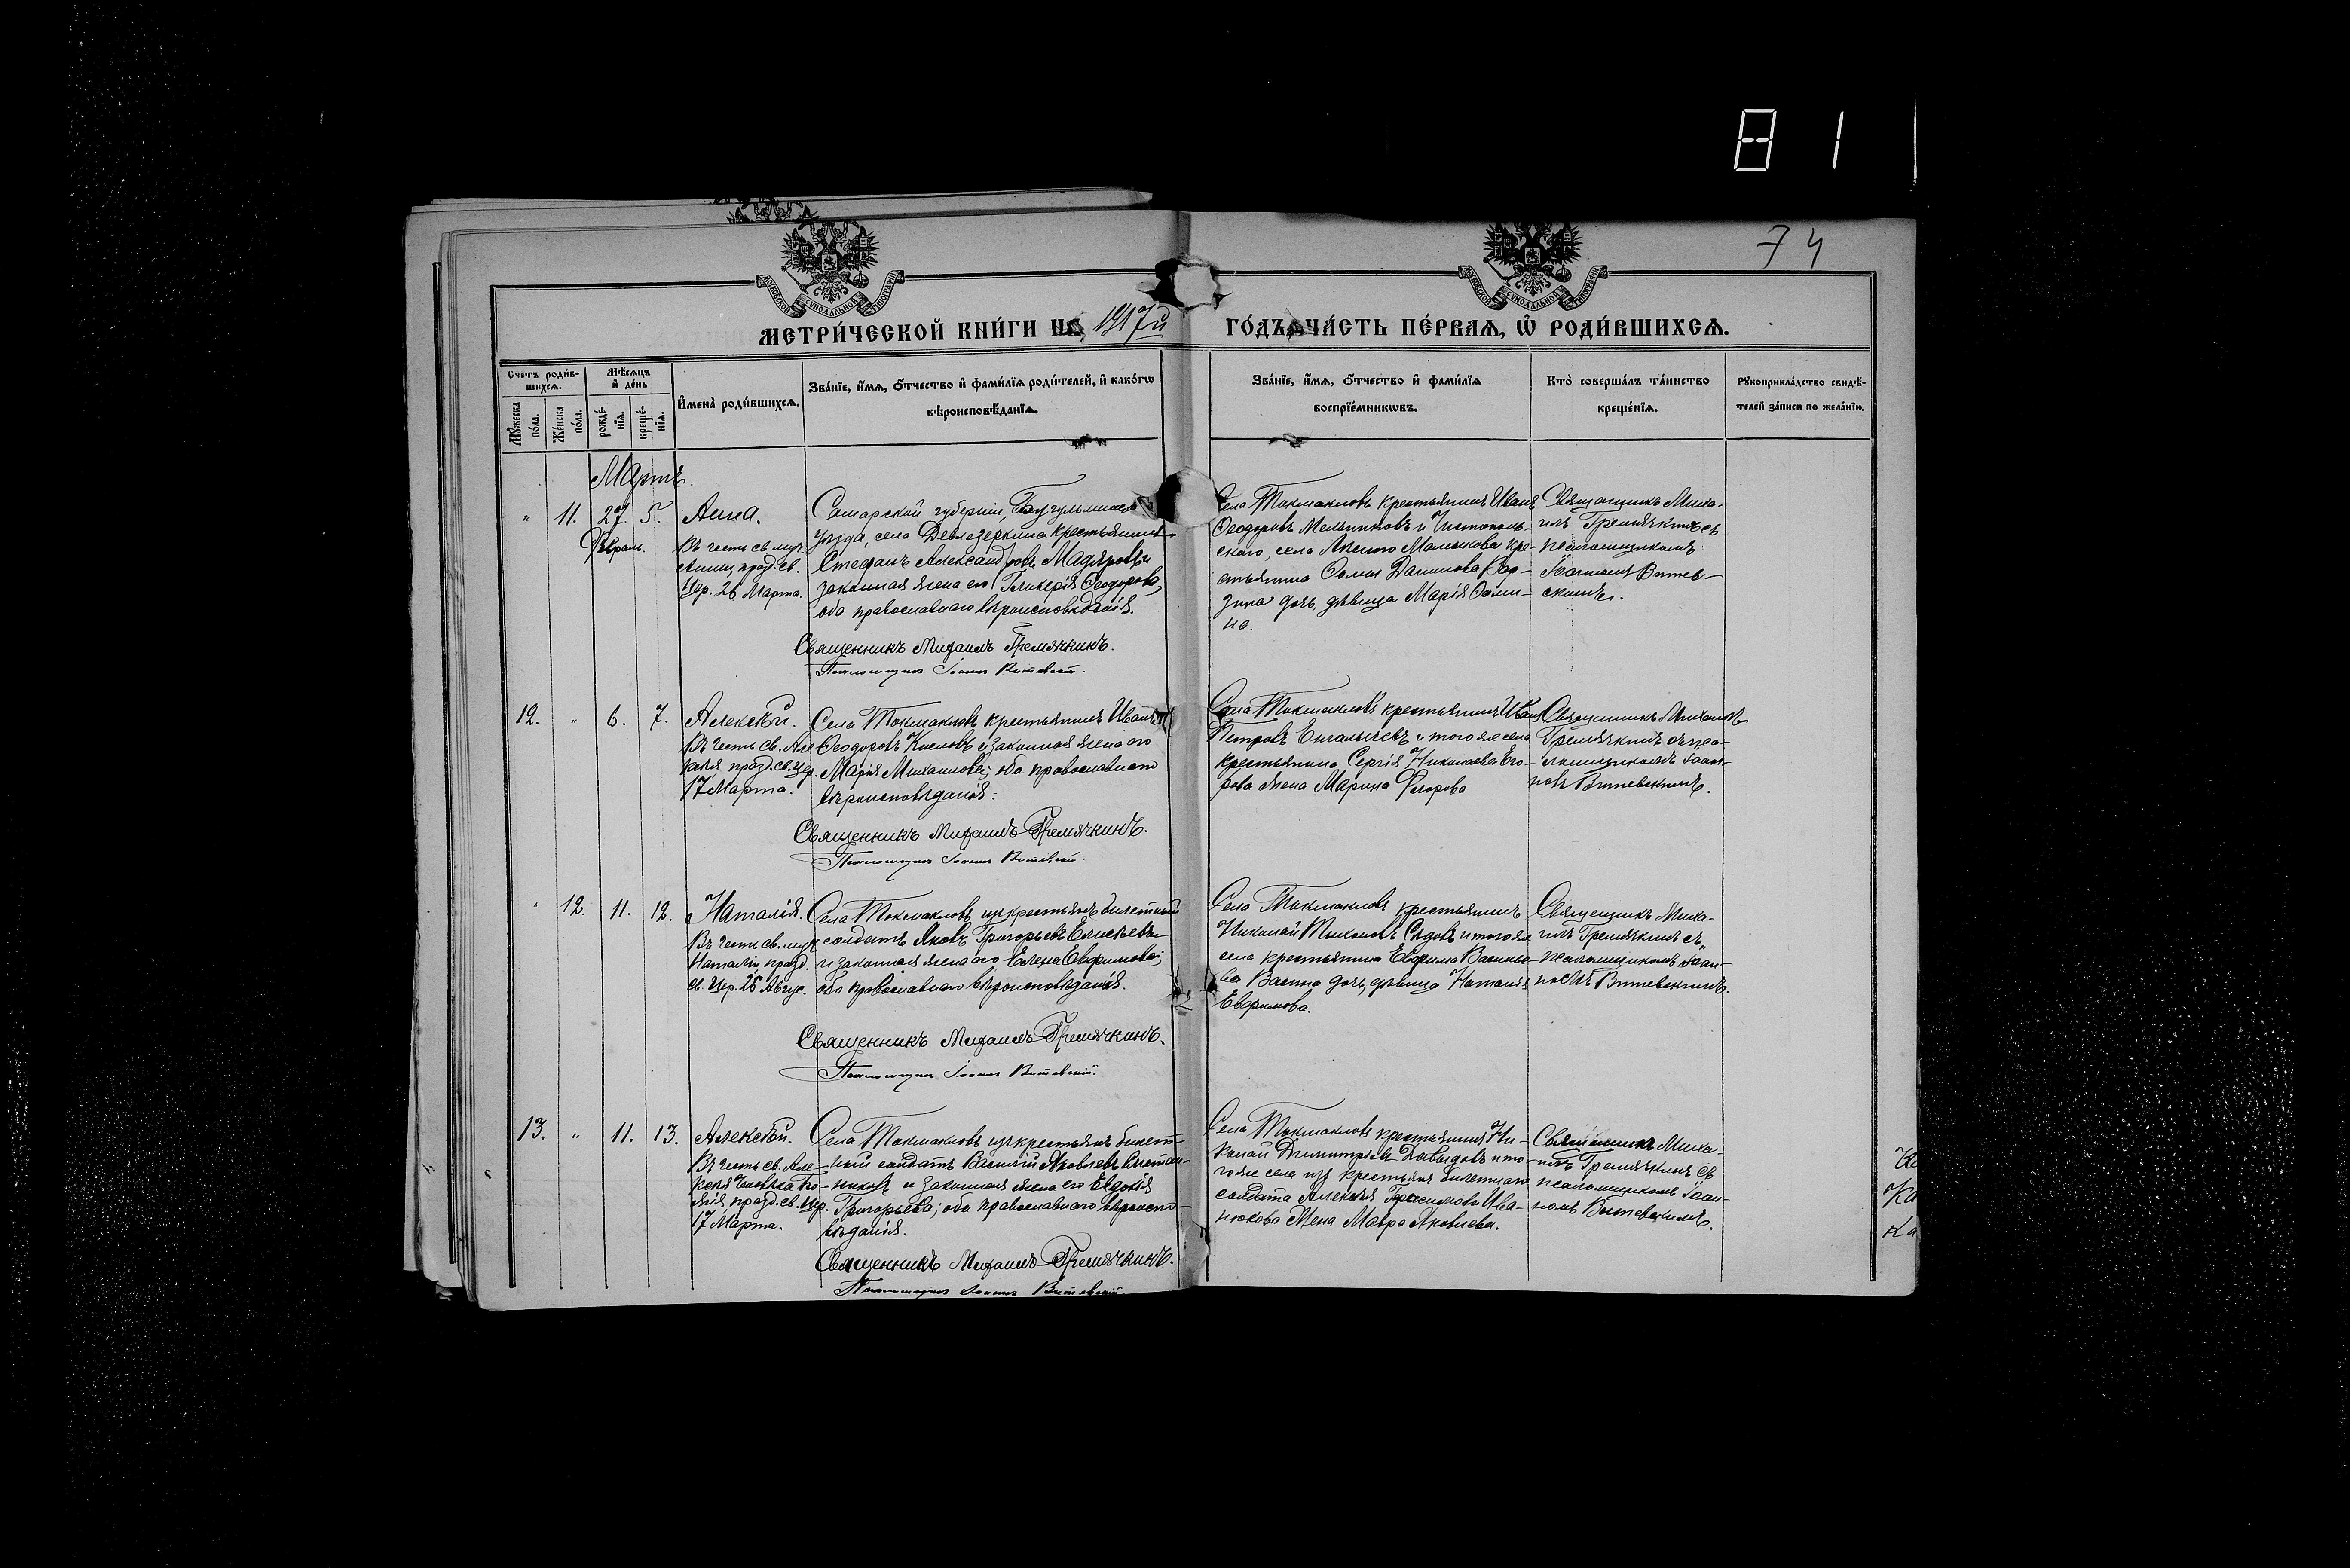 81
74
МОСКОВСКОЙ СУНОДАЛЬНОЙ ТИПОГРАФІИ
МОСКОВСКОЙ СУНОДАЛЬНОЙ ТИПОГРАФІИ
МЕТРИ́ЧЕСКОЙ КНИ́ГИ НА 1917й ГО́ДЪ, ЧА́СТЬ ПЕ́РВАѦ, Ѡ҆ РОДИ́ВШИХСѦ.
Счетъ роди́в-
шихсѧ.
Мꙋ́жеска по́ла.
Же́нска по́ла.
Мѣ́сѧцъ и҆ де́нь
рожде́-
нїѧ.
креще́-
нїѧ.
И҆мена̀ роди́вшихсѧ.
Зва́нїе, и҆́мѧ, ѻ҆́тчество и҆ фами́лїѧ роди́телей, и҆ како́гѡ
вѣроисповѣ́данїѧ.
Зва́нїе, и҆́мѧ, ѻ҆́тчество и҆ фами́лїѧ
воспрїе́мникѡвъ.
Кто̀ соверша́лъ та́инство
креще́нїѧ.
Рꙋкоприкла́дство свидѣ́-
телей за́писи по жела́нїю.
Мартъ.
" 11. 27. 5.
Февраль.
Анна.
Въ честь св. муч.
Анны, празд. св.
Цер. 26 Марта.
Самарской губерніи, Бугульминскаго
уѣзда, села Девлезеркина крестьянинъ
Стефанъ Александровъ и
законная жена его Гликерія Ѳеодорова,
оба православнаго вѣроисповѣданія.
Священникъ Михаилъ Гремячкинъ.
Псаломщикъ Іоаннъ Витевскій.
Села Токмакловъ крестьянинъ Иванъ
Ѳеодоровъ Мельниковъ и Чистополь-
скаго, села кре-
стьянина Ѳомы Данилова
дочь, дѣвица Марія Ѳоми-
на.
Священникъ Миха-
илъ Гремячкинъ съ
псаломщикомъ
Іоанномъ Витев-
скимъ.
12. " 6. 7.
Алексѣй.
Въ честь св. Але
ксѣя, празд. св. Цер.
17 Марта.
Села Токмакловъ крестьянинъ Иванъ
Ѳеодоровъ и законная жена его
Марія Михаилова; оба православнаго
вѣроисповѣданія.
Священникъ Михаилъ Гремячкинъ.
Псаломщикъ Іоаннъ Витевскій.
Села Токмакловъ крестьянинъ Иванъ
Петровъ Енгалычевъ и того же села
крестьянина Сергія Николаева Его-
рова жена Марина
Священникъ Михаилъ
Гремячкинъ съ пса-
ломщикомъ Іоан-
номъ Витевскимъ.
" 12. 11. 12.
Наталія.
Въ честь св. муч
Наталіи празд.
св. Цер. 26 Авгус.
Села Токмакловъ изъ крестьянъ билетный
солдатъ Яковъ Григорьевъ Елисѣевъ
и законная жена его Елена Евфимова;
оба православнаго вѣроисповѣданія.
Священникъ Михаилъ Гремячкинъ.
Псаломщикъ Іоаннъ Витевскій.
Села Токмакловъ крестьянинъ
Николай Тихоновъ и того же
села крестьянина Евфима Василье-
ва дочь, дѣвица Наталія
Евфимова.
Священникъ Миха-
илъ Гремячкинъ съ
псаломщикомъ Іоан-
номъ Витевскимъ.
13. " 11. 13.
Алексѣй.
Въ честь св. Але-
ксѣя Человѣка Бо-
жія, празд. св. Цер.
17 Марта.
Села Токмакловъ изъ крестьянъ билет-
ный солдатъ Василій Яковлевъ
и законная жена его Евдокія
Григорьева; оба православнаго вѣроиспо-
вѣданія.
Священникъ Михаилъ Гремячкинъ.
Псаломщикъ Іоаннъ Витевскій.
Села Токмакловъ крестьянинъ Ни-
колай Димитріевъ Давыдовъ и то-
го же села изъ крестьянъ билетнаго
солдата Алексѣя Ива-
нюкова жена Мавра Яковлева.
Священникъ Миха-
илъ Гремячкинъ съ
псаломщикомъ Іоан-
номъ Витевскимъ.